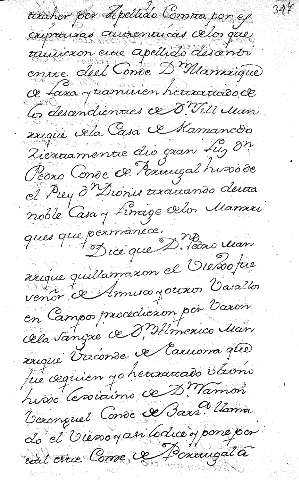 347
por Apellido Comta por el
escripturas autenticas de los que
tuvieron ese apellido descendi
entre de el Conde Dn Manrrique
de Lara y tambien he tratado de
los descendientes de Dn Till Man
rrique de la Casa de Mamanedo
Ziertamente dio gran luz Dn
Pedro Conde de Portugal hijo de
el Rey Dn Dionis tratando de esta
noble Casa y Linage de los Manrri
ques que permanece.
Dice que Dn Pedro Man
rrique que llamaron el Viejo fue
señor de Amusco y otros Vasallos
en Campos procedieron por Varon
de la sangre de Dn Almerico Man
rrique Vizconde de Narvona que
fue de quien yo he tratado ultimo
hijo lexitimo de Dn Ramon
Verenguel Conde de Barza llama
do el Viejo y asi lo dice y pone por
tal este Conde de Portugal a